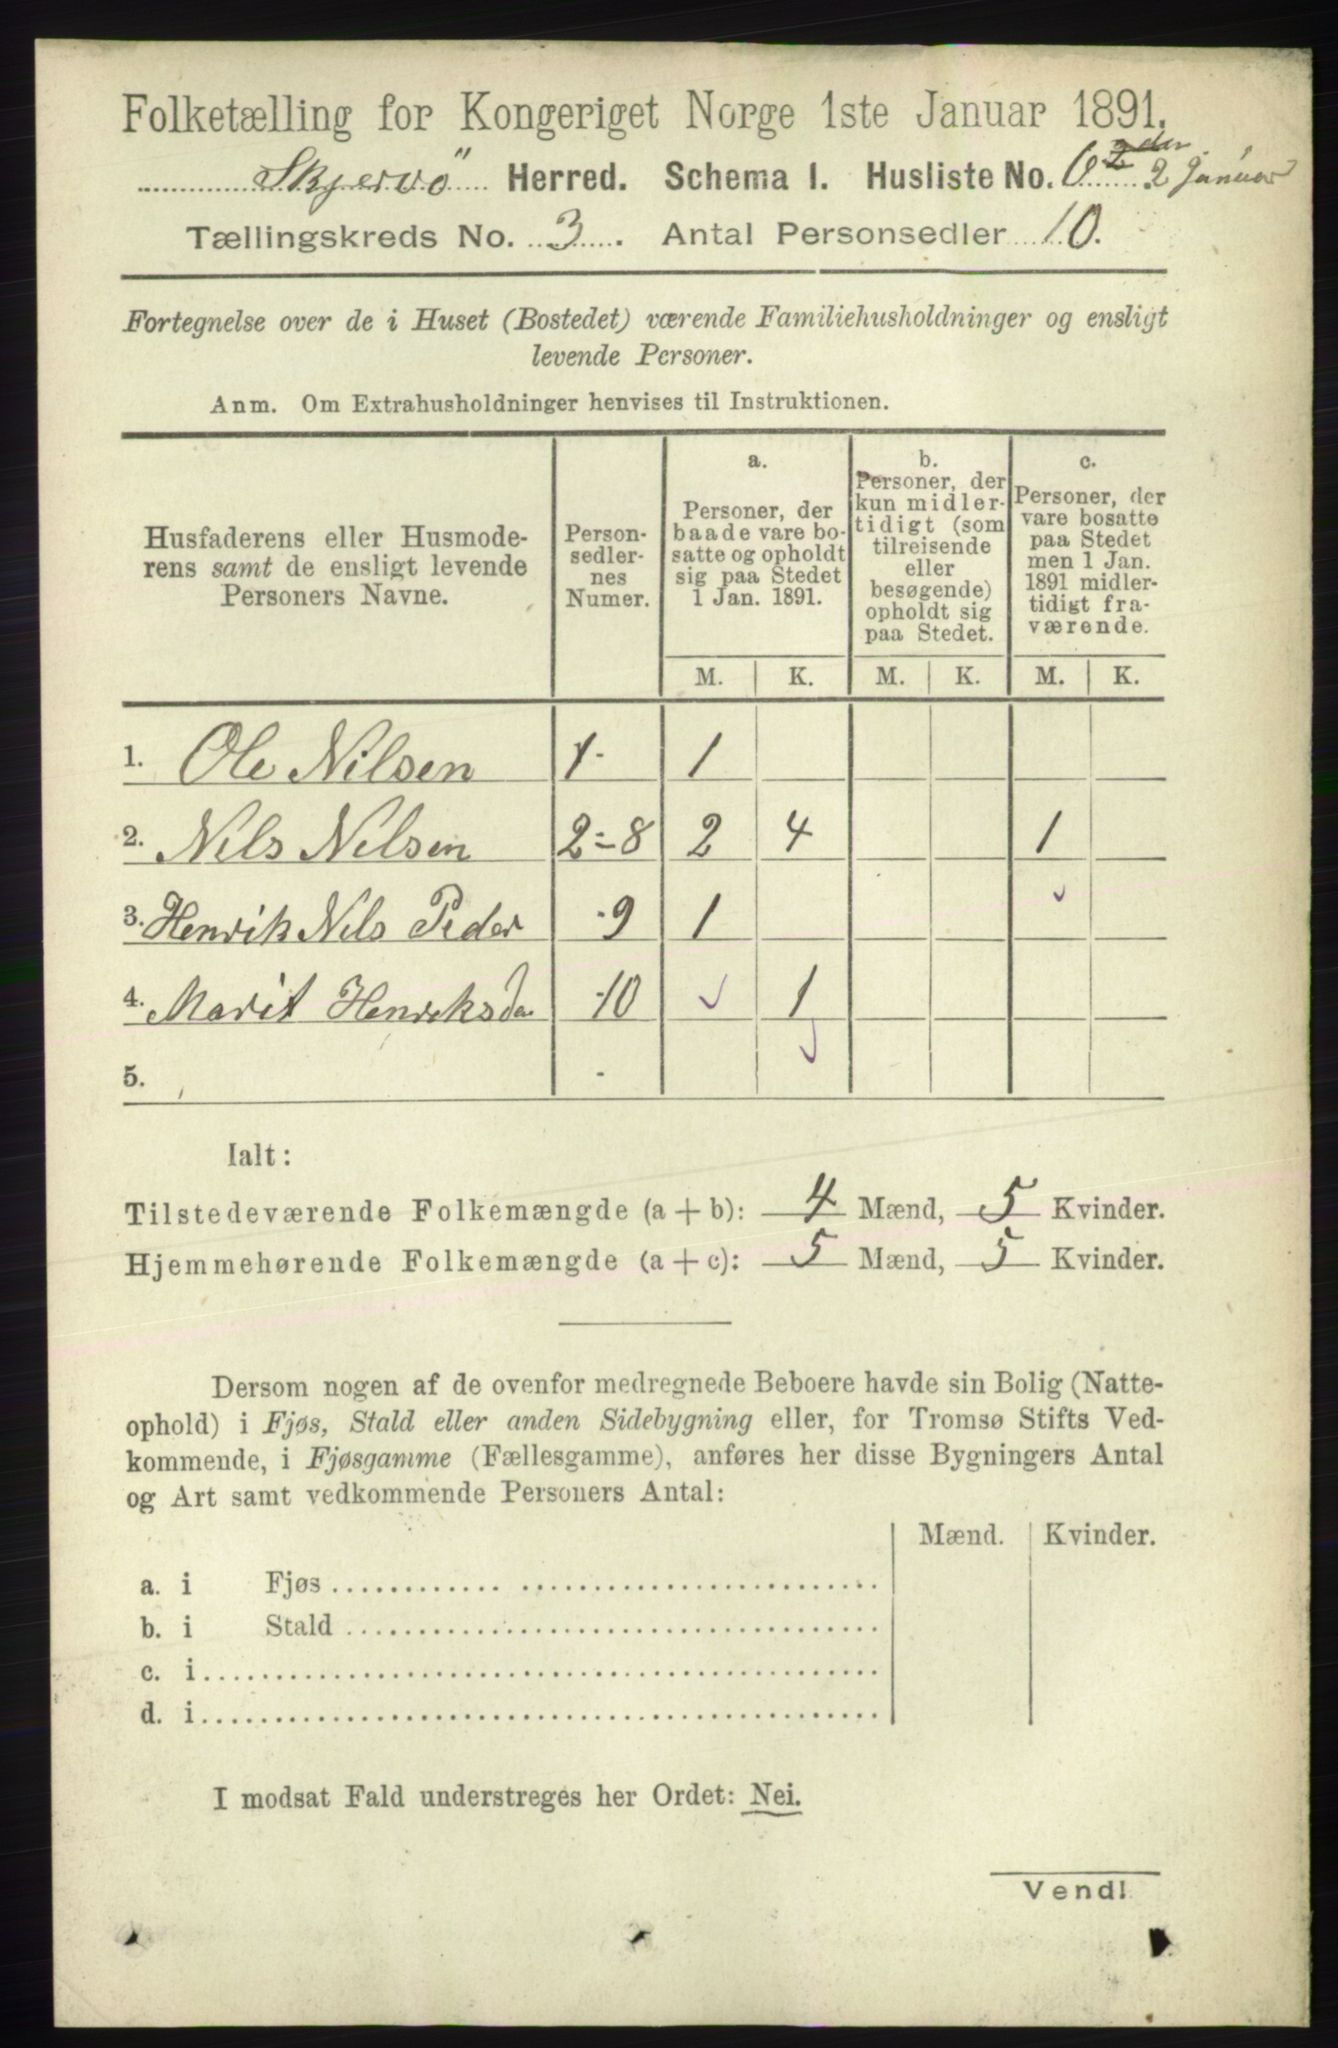 Folketælling for Kongeriget Norge 1ste Januar 1891.
Skjervö Herred. Schema 1. Husliste No. 6 2 den 2 Januar
Tællingskreds No. 3. Antal Personsedler 10.
Fortegnelse over de i Huset (Bostedet) værende Familiehusholdninger og ensligt
levende Personer.
Anm. Om Extrahusholdninger henvises til Instruktionen.
Husfaderens eller Husmode-
rens samt de ensligt levende
Personers Navne.
Person-
sedler-
nes
Numer.
a.
Personer, der
baade vare bo-
satte og opholdt
sig paa Stedet
1 Jan. 1891.
b.
Personer, der
kun midler-
tidigt (som
tilreisende
eller
besøgende)
opholdt sig
paa Stedet.
c.
Personer, der
vare bosatte
paa Stedet
men 1 Jan.
1891 midler-
tidigt fra-
værende.
M. K. M. K. M. K.
1. Ole Nilsen 1 1
2. Nils Nilsen 2-8 2 4 1
3. Henrik Nils Peder 9 1
4. Marit Henriksda 10 1
5.
Ialt:
Tilstedeværende Folkemængde (a + b): 4 Mænd, 5 Kvinder.
Hjemmehørende Folkemængde (a + c): 5 Mænd, 5 Kvinder.
Dersom nogen af de ovenfor medregnede Beboere havde sin Bolig (Natte-
ophold) i Fjøs, Stald eller anden Sidebygning eller, for Tromsø Stifts Ved-
kommende, i Fjøsgamme (Fællesgamme), anføres her disse Bygningers Antal
og Art samt vedkommende Personers Antal:
Mænd. Kvinder.
a. i Fjøs
b. i Stald
c. i
d. i
I modsat Fald understreges her Ordet: Nei.
Vend!